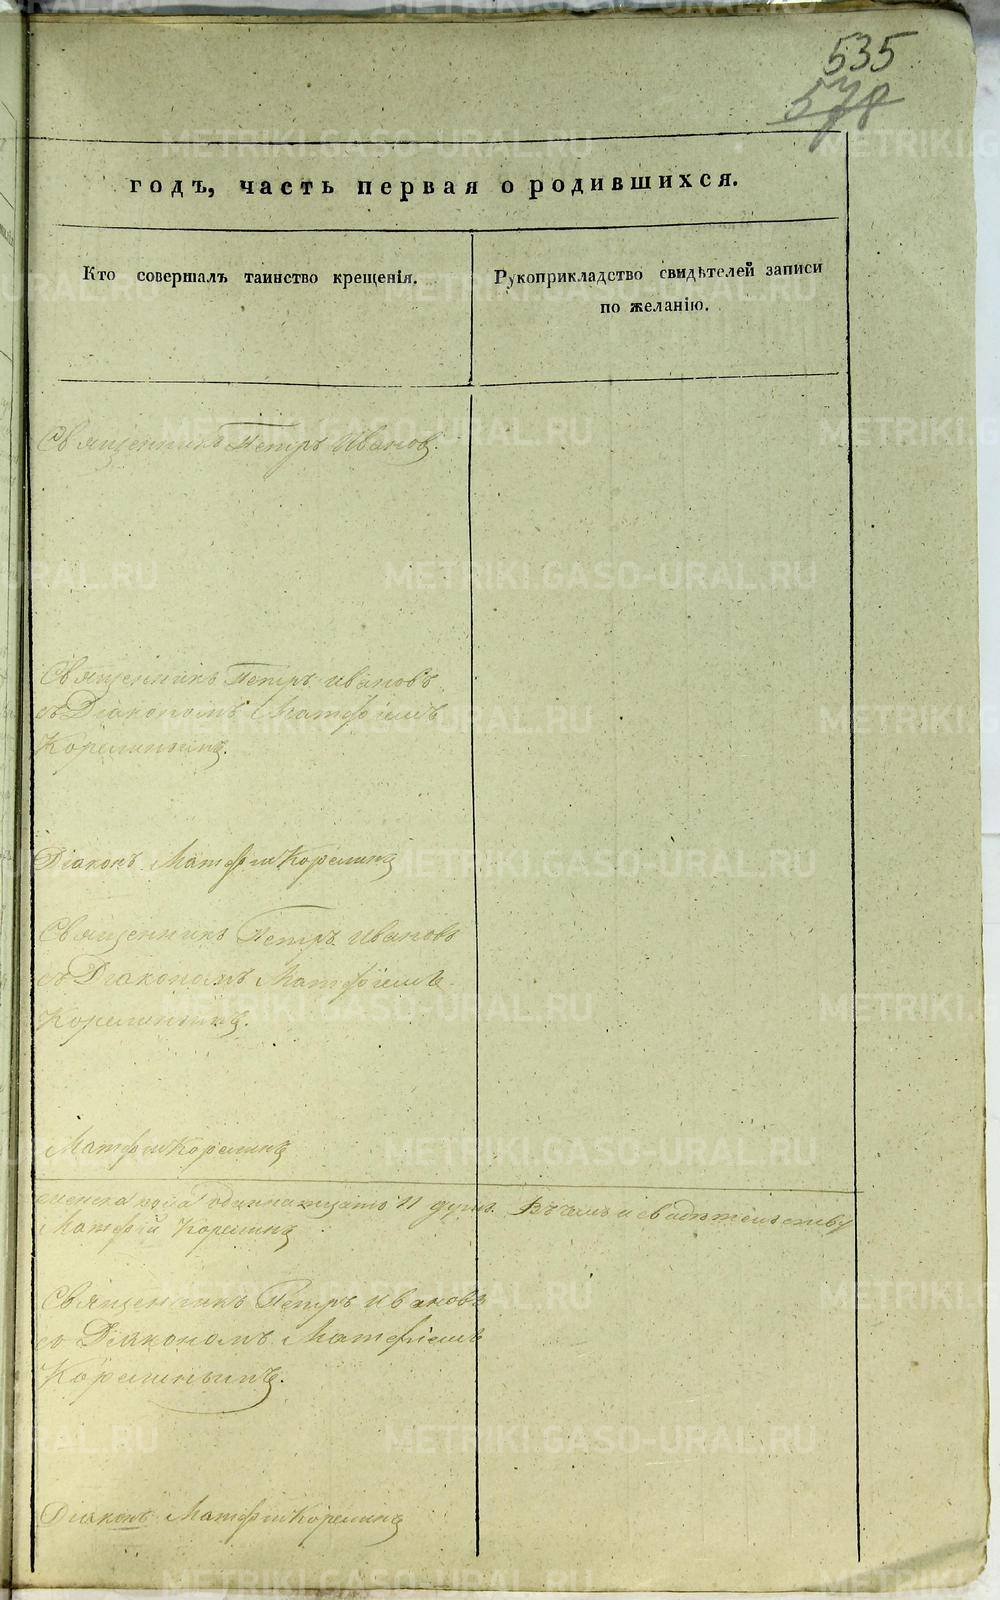 535
578
годъ, часть первая о родившихся.
Кто совершалъ таинство крещенія.
Рукоприкладство свидѣтелей записи
по желанію.
Священникъ Петръ Ивановъ.
Священникъ Петръ Ивановъ
съ Діакономъ Матфіемъ
Корелинымъ.
Діаконъ Матфій Корелинъ
Священникъ Петръ Ивановъ
съ Діакономъ Матфіемъ
Корелинымъ.
Матфій Корелинъ
женска пола одиннадцать 11 душъ. Въ чемъ и свидѣтельству
Матфій Корелинъ
Священникъ Петръ Ивановъ
съ Діакономъ Матфіемъ
Корелинымъ.
Діаконъ Матфій Корелинъ
METRIKI.GASO-URAL.RU